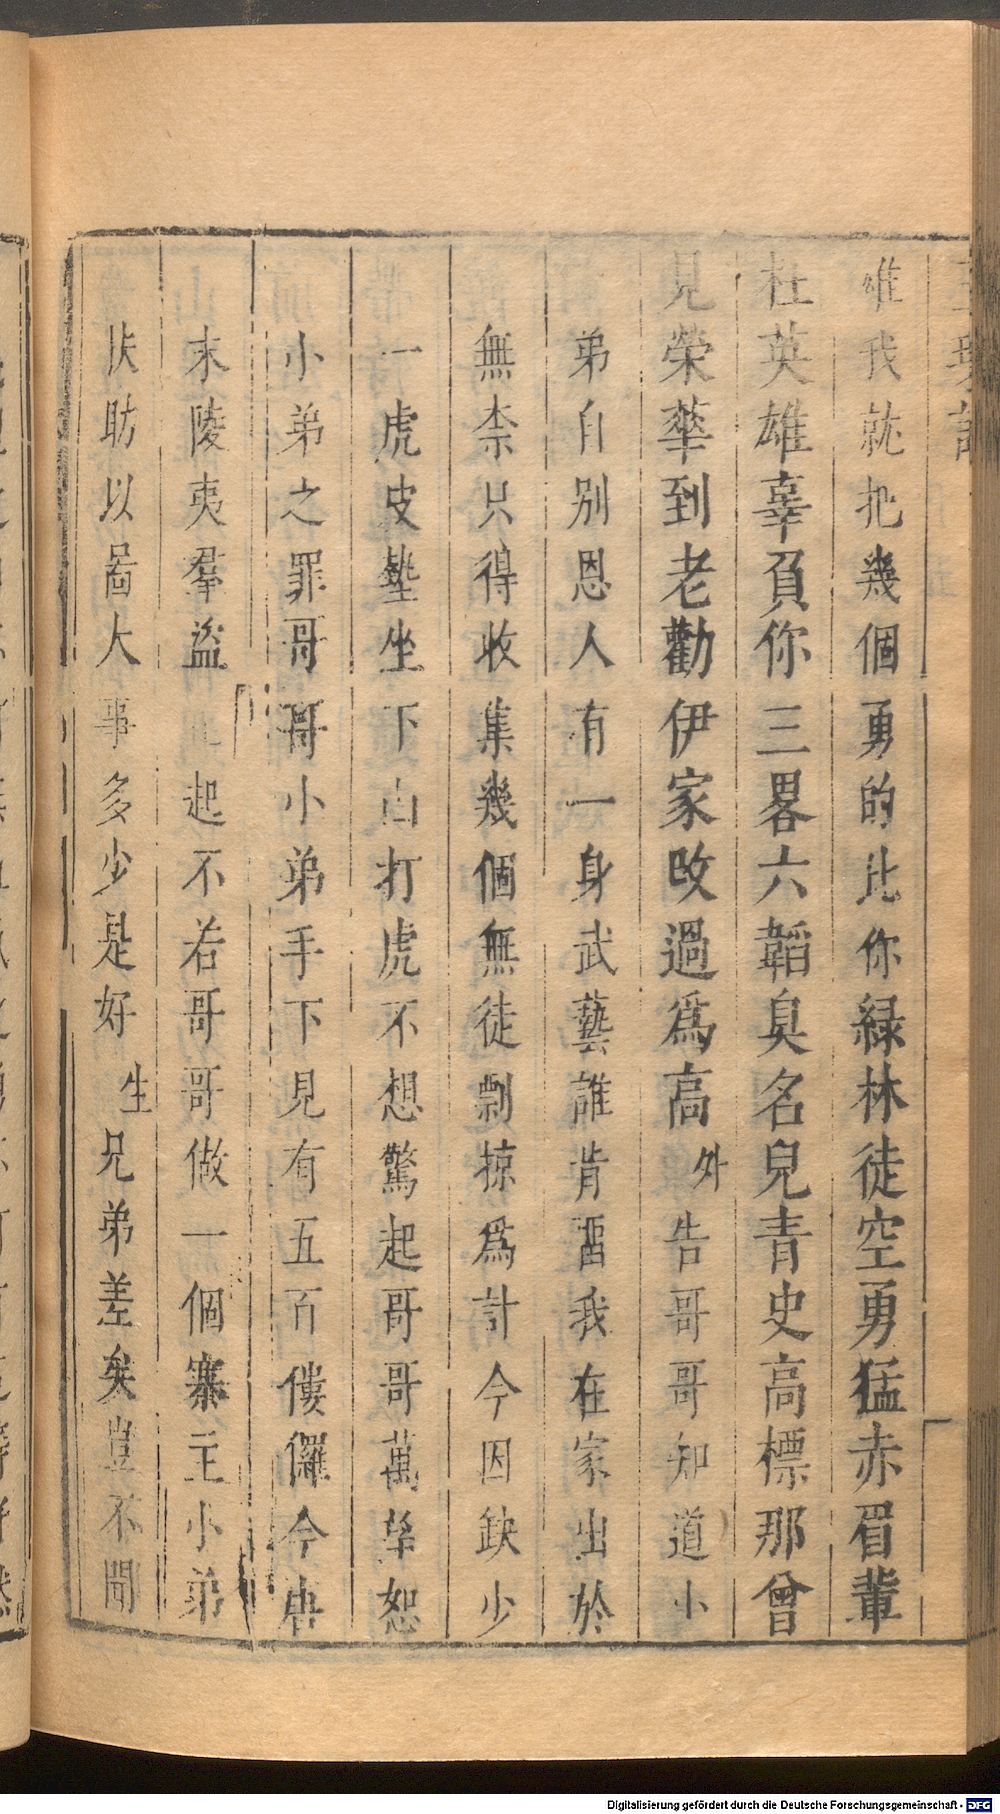 雄我就把幾個勇的比你緑林徒空勇猛赤眉輩
杜英雄辜負你三畧六韜臭名兒青史高標那曾
見榮華到老勸伊家改過爲高外告哥哥知道小
弟自别恩人有一身武藝誰肯畱我在家出於
無柰只得收集幾個無徒剽掠爲計今因缺少
一虎皮墊坐下山打虎不想驚起哥哥萬幸恕
小弟之罪哥哥小弟手下見有五百僂儸今唐
末陵夷羣盜起不若哥哥做一個寨主小弟
扶助以啚大事多少是好生兄弟差矣豈不聞
Digitalisierung gefördert durch die Deutsche Forschungsgemeinschaft - DFG